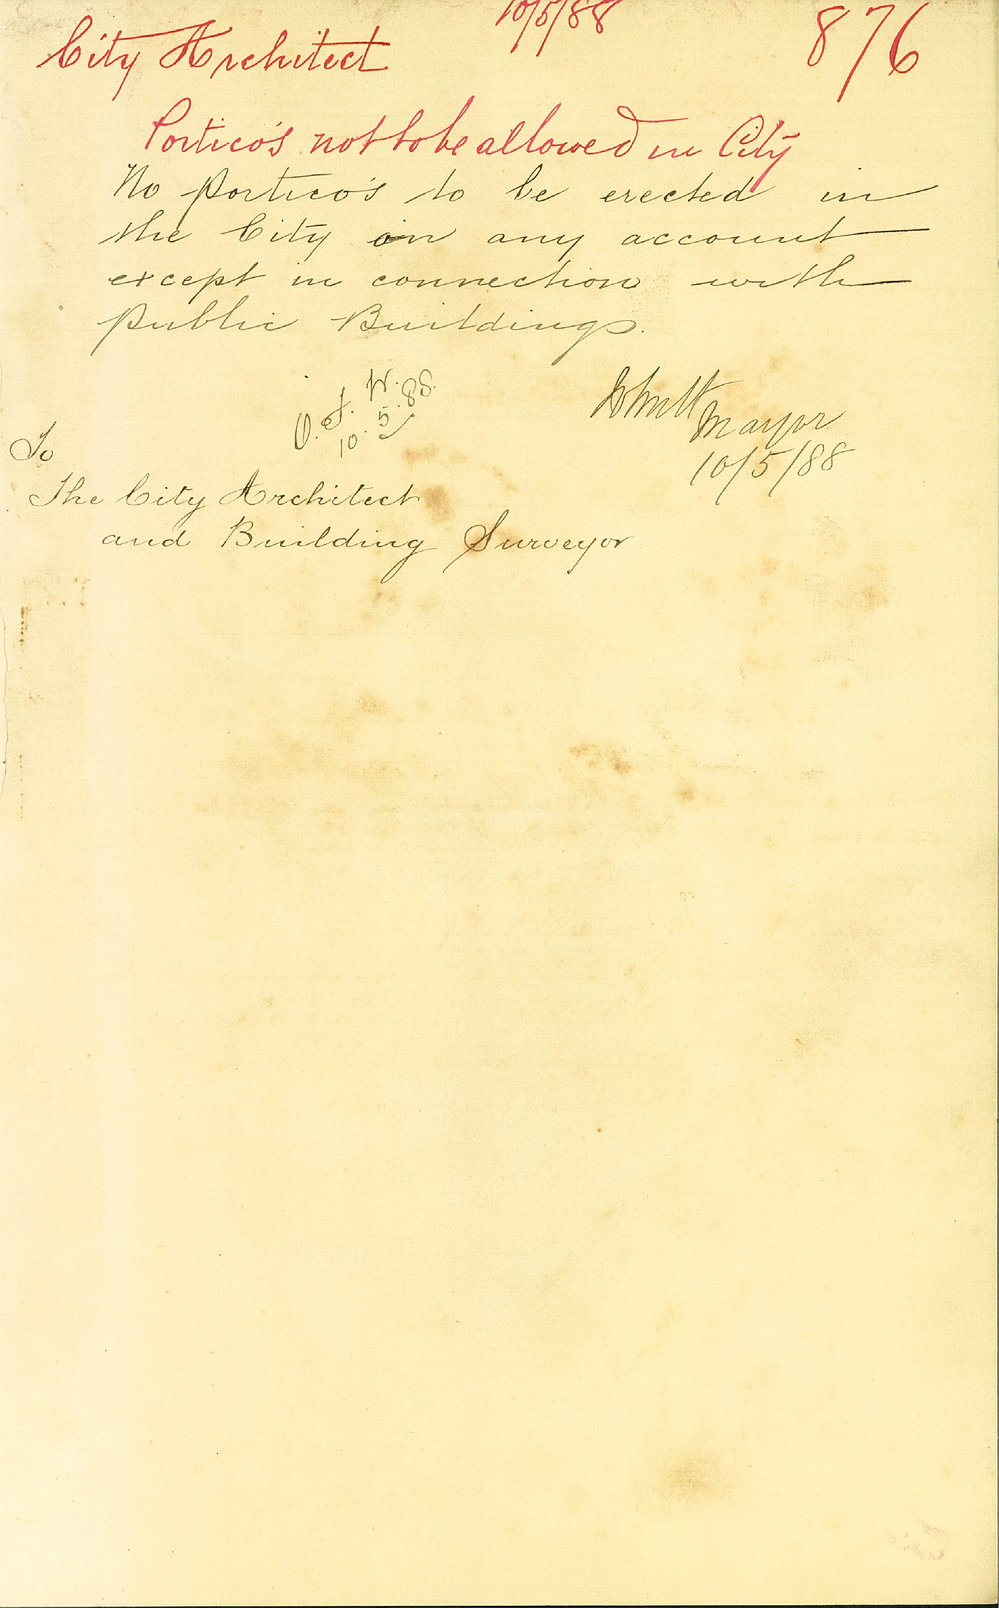 10/5/88
City Architect
876
Portico's not to be allowed in City
No Portico's to be erected in
the City on any account
except in connection with
Public Buildings.
W.
10.5.88.
Mayor
10/5/88
To
The City Architect
and Building Surveyor